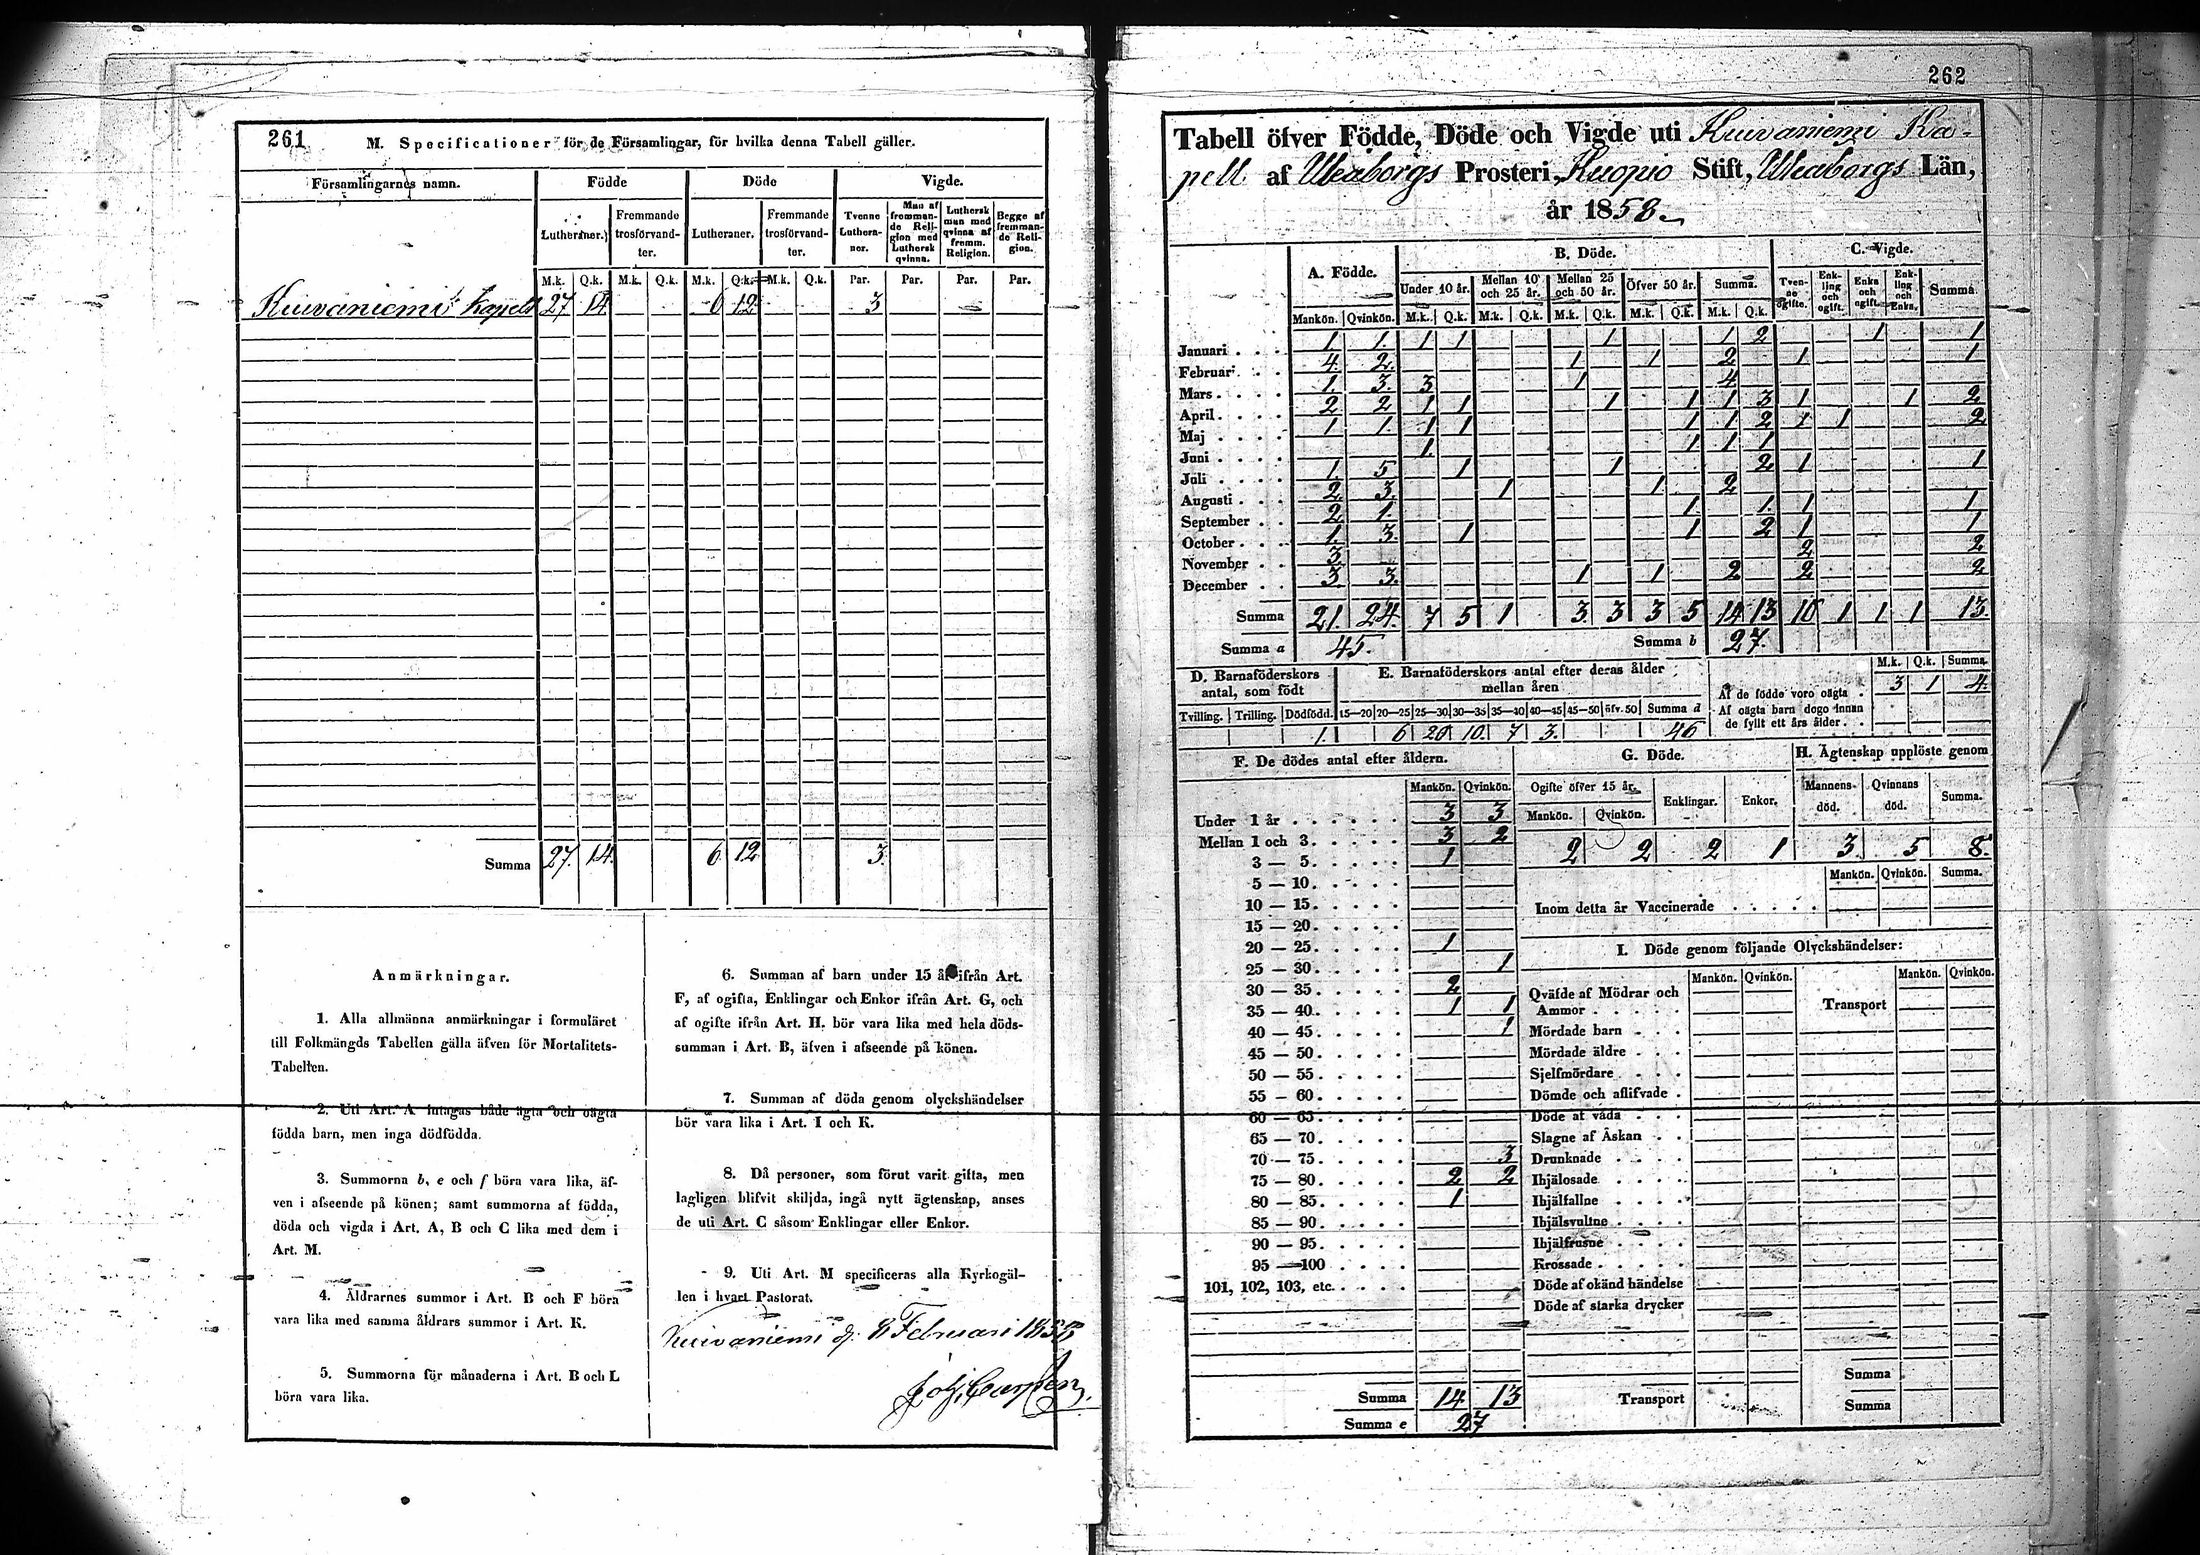 261
M. Specificationer för de Församlingar, för hvilka denna Tabell gäller.
Församlingarnes namn. Födde Döde Vigde.
Lutheraner. Fremmande trosförvandter. Lutheraner. Fremmande trosförvandter. Tvenne Lutheraner. Man af fremmande Religion med Luthersk qvinna. Luthersk man med qvinna af fremm. Religion. Begge af fremmande Religion.
M.k. Q.k. M.k. Q.k. M.k. Q.k. M.k. Q.k. Par. Par. Par. Par.
Kuivaniemi Kapell 27 14 6 12 3
Summa 27. 14 6 12 3
Anmärkningar.
1. Alla allmänna anmärkningar i formuläret
till Folkmängds Tabellen gälla äfven för Mortalitets-
Tabellen.
2. Uti Art. A intagas både ägta och oägta
födda barn, men inga dödfödda.
3. Summorna b, e och f böra vara lika, äf-
ven i afseende på könen; samt summorna af födda,
döda och vigda i Art. A, B och C lika med dem i
Art. M.
4. Åldrarnes summor i Art. B och F böra
vara lika med samma åldrars summor i Art. K.
5. Summorna för månaderna i Art. B och L
böra vara lika.
6. Summan af barn under 15 år ifrån Art.
F, af ogifta, Enklingar och Enkor ifrån Art. G, och
af ogifte ifrån Art. H. bör vara lika med hela döds-
summan i Art. B, äfven i afseende på könen.
7. Summan af döda genom olyckshändelser
bör vara lika i Art. I och K.
8. Då personer, som förut varit gifta, men
lagligen blifvit skiljda, ingå nytt ägtenskap, anses
de uti Art. C såsom Enklingar eller Enkor.
9. Uti Art. M specificeras alla Kyrkogäl-
len i hvart Pastorat.
Kuivaniemi d. 8 Februari
262
Tabell öfver Födde, Döde och Vigde uti Kuivaniemi Ka-
pell af Uleaborgs Prosteri, Kuopio Stift, Uleaborgs Län,
år 1858
A. Födde. B. Döde. C. Vigde.
Under 10 år. Mellan 10 och 25 år. Mellan 25 och 50 år. Öfver 50 år. Summa. Tvenne ogifte. Enkling och ogift. Enka och ogift. Enkling och Enka. Summa.
Mankön. Qvinkön. M.k. Q.k. M.k. Q.k. M.k. Q.k. M.k. Q.k. M.k. Q.k.
Januari 1 1 1 1 1 1 2 1 1
Februari 4 2 1 1 2 1 1
Mars 1 3 3 1 4
April 2 2 1 1 1 1 1 3 1 1 2
Maj 1 1 1 1 1 1 2 1 1 2
Juni 1 1 1 1
Juli 1 5 1 1 2 1 1
Augusti 2 3 1 1 2
September 2 1 1 1 1 1
October 1 3 1 1 2 1 1
November 3 2 2
December 3 3 1 1 2 2 2
Summa 21. 24. 7 5 1 3 3 3 5 14 13 10 1 1 1 13.
Summa a 45. Summa b 27.
D. Barnaföderskors antal, som födt
Tvilling. Trilling. Dödfödd.
1.
E. Barnaföderskors antal efter deras ålder
mellan åren
15—20 20—25 25—30 30—35 35—40 40—45 45—50 öfv. 50 Summa d
6 20 10. 7 3. 46
M.k. Q.k. Summa.
Af de födde voro oägta 3 1 4
Af oägta barn dogo innan
de fyllt ett års ålder
F. De dödes antal efter åldern.
Mankön. Qvinkön.
Under 1 år 3 3
Mellan 1 och 3 3 2
3 — 5 1
5 — 10
10 — 15
15 — 20
20 — 25 1
25 — 30 1
30 — 35 2
35 — 40 1 1
40 — 45 1
45 — 50
50 — 55
55 — 60
60 — 65
65 — 70
70 — 75 3
75 — 80 2 2
80 — 85 1
85 — 90
90 — 95
95 — 100
101, 102, 103, etc.
Summa 14 13
Summa e 27
G. Döde.
Ogifte öfver 15 år. Enklingar. Enkor.
Mankön. Qvinkön.
2 2 2 1
H. Ägtenskap upplöste genom
Mannens död. Qvinnans död. Summa.
3 5 8.
Mankön. Qvinkön. Summa.
Inom detta år Vaccinerade
I. Döde genom följande Olyckshändelser:
Mankön. Qvinkön. Mankön. Qvinkön.
Qväfde af Mödrar och
Ammor
Mördade barn
Mördade äldre
Sjelfmördare
Dömde och aflifvade
Döde af våda
Slagne af Åskan
Drunknade
Ihjälosade
Ihjälfallne
Ihjälsvultne
Ihjälfrusne
Krossade
Döde af okänd händelse
Döde af starka drycker
Transport
Transport
Summa
Summa